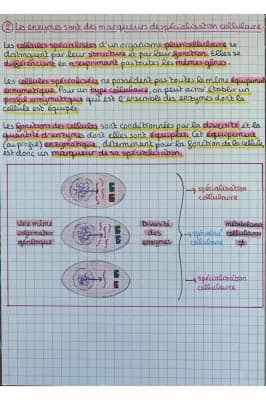 ② Les enzymes sont des marqueurs de spécialisation cellulaire :
Les cellules spécialisées d'un organisme pluricellulaire se
distinguent par leur structure et par leur fonction. Elles se
différencient en n'exprimant pas toutes les mêmes gènes.
Les cellules spécialisées ne possèdent pas toutes le même équipement
enzymatique. Pour un type cellulaire, on peut ainsi établir un
profil enzymatique qui est l'ensemble des enzymes dont la
cellule est équipée.
Les fonctions des cellules sont conditionnées par la diversité et la
quantité d'enzymes dont elles sont équipées. Cet équipement
(ou profil) enzymatique, déterminant pour la fonction de la cellule,
est donc un marqueur de sa spécialisation.
→ spécialisation
cellulaire
Une même
information
génétique
Diversité
des
enzymes
→ spécialisé
cellulaire
métabolisme
cellulaire
≠
→ spécialisation
cellulaire